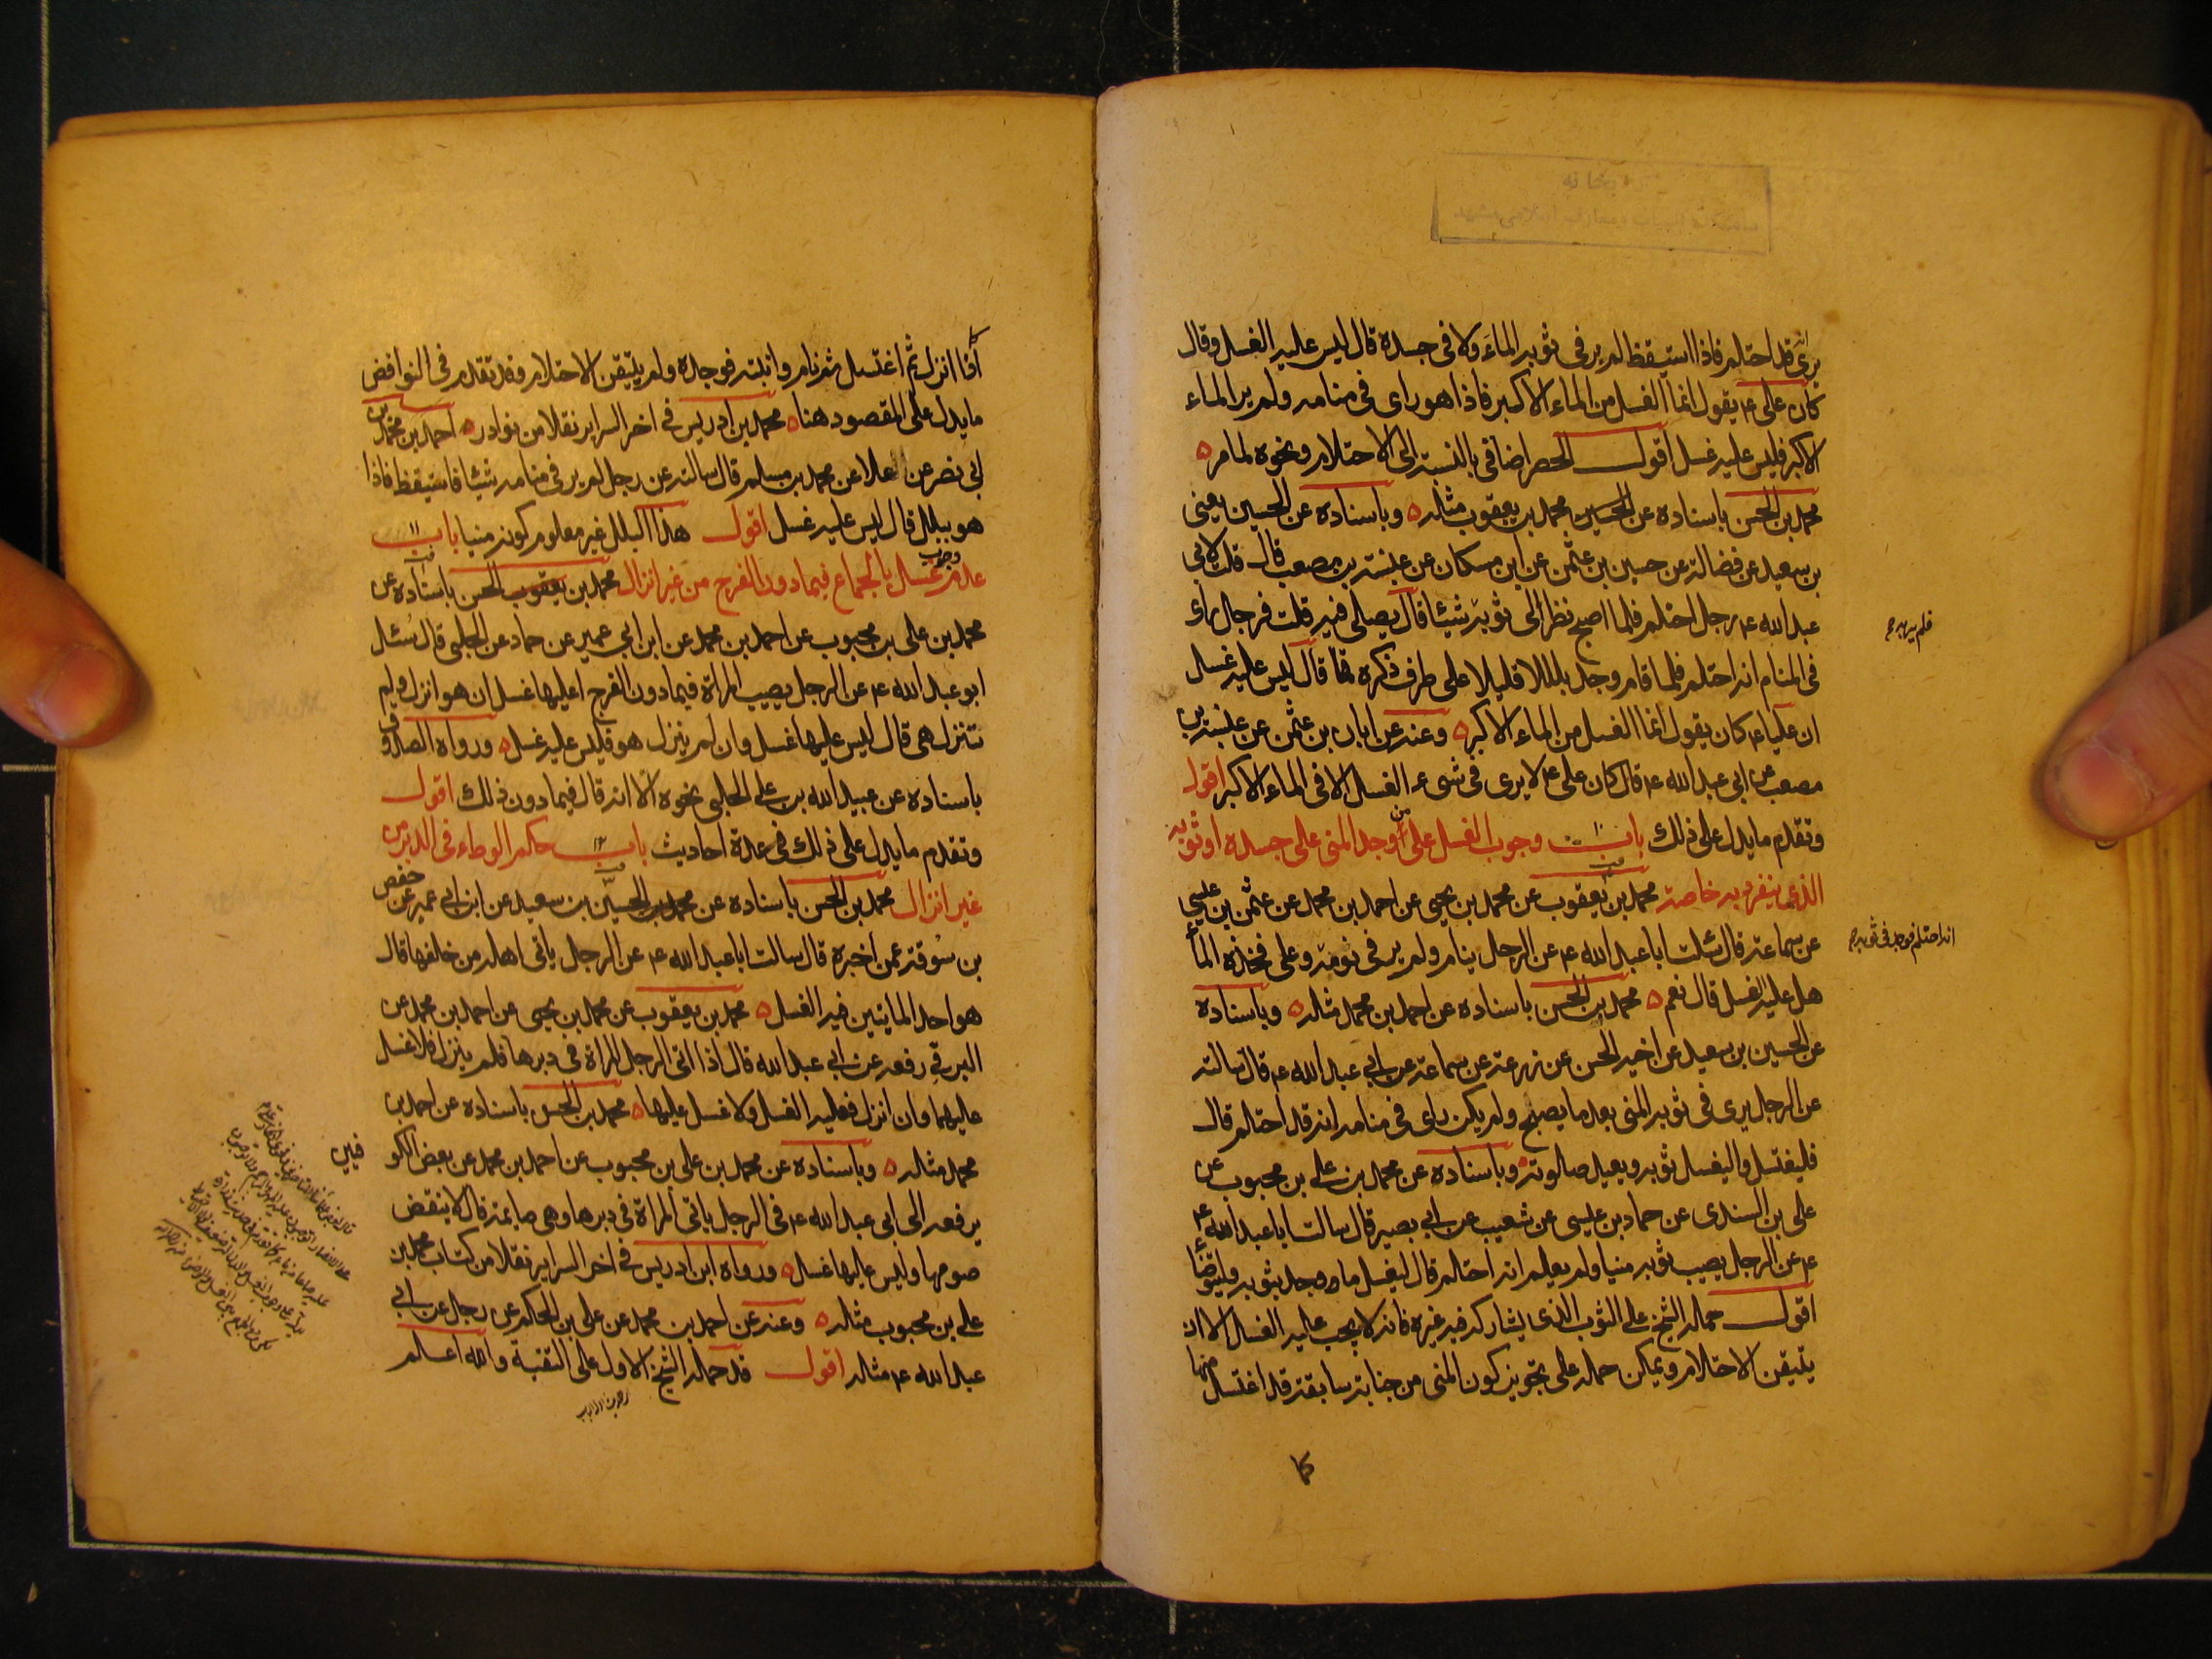 يرى قد احتلم فاذا استيقظ لم ير في ثوبه الماء ولا في جسده قال ليس عليه الغسل وقال
كان علي ع يقول انما الغسل من الماء الاكبر فاذا هو راى في منامه ولم ير الماء
الاكبر فليس عليه غسل اقول الحصر اضافي بالنسبة الى الاحتلام ونحوه لما مر
محمد بن الحسن باسناده عن الحسين محمد بن يعقوب مثله وباسناده عن الحسين يعني
بن سعيد عن فضالة عن حسين بن عثمن عن ابن مسكان عن عنبسة بن مصعب قال قلت لابي
عبد الله ع رجل احتلم فلما اصبح نظر الى ثوبه شيئا قال يصلي فيه قلت فرجل راى
في المنام انه احتلم فلما قام وجد بللا قليلا على طرف ذكره قال ليس عليه غسل
ان عليا ع كان يقول انما الغسل من الماء الاكبر وعنه عن ابان بن عثمن عن عنبسة بن
مصعب عن ابي عبد الله ع قال كان علي ع لا يرى في شيء الغسل الا في الماء الاكبر اقول
وتقدم ما يدل على ذلك باب ١٠ وجوب الغسل على من وجد المني على جسده او ثوبه
الذي ينفرد به خاصة محمد بن يعقوب عن محمد بن يحيى عن احمد بن محمد عن عثمن بن عيسى
عن سماعة قال سئلت ابا عبد الله ع عن الرجل ينام ولم ير في نومه وعلى فخذه الماء
هل عليه الغسل قال نعم محمد بن الحسن باسناده عن احمد بن محمد مثله وباسناده
عن الحسين بن سعيد عن اخيه الحسن عن زرعة عن سماعة عن ابي عبد الله ع قال سالته
عن الرجل يرى في ثوبه المني بعد ما يصبح ولم يكن راى في منامه انه قد احتلم قال
فليغتسل واليغسل ثوبه ويعيد صلوته وباسناده عن محمد بن علي بن محبوب عن
علي بن السندي عن حماد بن عيسى عن شعيب عن ابي بصير قال سالت ابا عبد الله ع
ع عن الرجل يصيب ثوبه منيا ولم يعلم انه احتلم قال ليغسل ما وجد بثوبه وليتوضأ
اقول حمله الشيخ على الثوب الذي يشاركه فيه غيره فانه لا يجب عليه الغسل الا ان
يتيقن الاحتلام ويمكن حمله على تجويز كون المني من جنابة سابقة قد اغتسل منها
كما
فلم ير به
انه احتلم فوجد في ثوبه
كما
اذا انزل ثم اغتسل ثم نام وانتبه فوجده ولم يتيقن الاحتلام وقد تقدم في النواقض
ما يدل على المقصود هنا محمد بن ادريس في اخر السراير نقلا من نوادر احمد بن محمد بن
ابي نصر عن العلا عن محمد بن مسلم قال سالته عن رجل لم ير في منامه شيئا فاستيقظ فاذا
هو ببلل قال ليس عليه غسل اقول هذا البلل غير معلوم كونه منيا باب ١١
عدم وجوب غسل بالجماع فيما دون الفرج من غير انزال محمد بن يعقوب الحسن باسناده عن
محمد بن علي بن محبوب عن احمد بن محمد عن ابن ابي عمير عن حماد عن الحلبي قال سئل
ابو عبد الله ع عن الرجل يصيب المراة فيما دون الفرج اعليها غسل ان هو انزل ولم
تنزل هي قال ليس عليها غسل وان لم ينزل هو فليس عليه غسل ورواه الصدوق
باسناده عن عبيد الله بن علي الحلبي نحوه الا انه قال فيما دون ذلك اقول
وتقدم ما يدل على ذلك في عدة احاديث باب ١٢ حكم الوطاء في الدبر من
غير انزال محمد بن الحسن باسناده عن الحسين بن سعيد عن ابن ابي عمير عن حفص
بن سوقة عمن اخبره قال سالت ابا عبد الله ع عن الرجل ياتي اهله من خلفها قال
هو احد الماتيين فيه الغسل محمد بن يعقوب عن محمد بن يحيى عن احمد بن محمد عن
البرقي رفعه عن ابي عبد الله قال اذا اتى الرجل المراة في دبرها فلم ينزل فلا غسل
عليهما وان انزل فعليه الغسل ولا غسل عليها محمد بن الحسن باسناده عن احمد بن
محمد مثله وباسناده عن محمد بن علي بن محبوب عن احمد بن محمد عن بعض الكو
فيين
يرفعه الى ابي عبد الله ع في الرجل ياتي المراة في دبرها وهي صايمة قال لا ينقض
صومها وليس عليها غسل ورواه ابن ادريس في اخر السراير نقلا من كتاب محمد بن
علي بن محبوب مثله وعنه عن احمد بن محمد عن علي بن الحكم عن رجل عن ابي
عبد الله ع مثله اقول قد حمله الشيخ الاول على التقية والله اعلم